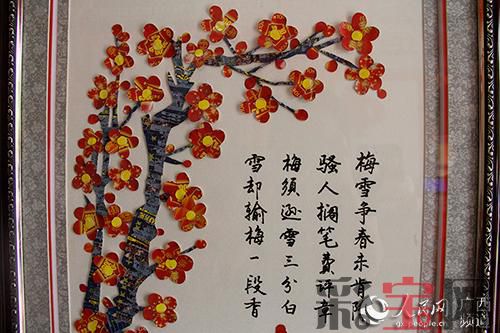 梅雪争春未肯降
骚人搁笔费评章
梅須逊雪三分白
雪却输梅一段香
人民网
广西